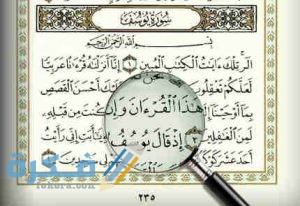 سُورَةُ يُوسُفَ
بِسْمِ اللَّهِ الرَّحْمَٰنِ الرَّحِيمِ
الٓر تِلْكَ ءَايَٰتُ الْكِتَٰبِ الْمُبِينِ ١ إِنَّآ أَنزَلْنَٰهُ قُرْءَٰنًا عَرَبِيًّا
لَّعَلَّكُمْ تَعْقِلُونَ نَحْنُ عَلَيْكَ أَحْسَنَ الْقَصَصِ
بِمَآ أَوْحَيْنَآ هَٰذَا الْقُرْءَانَ وَإِن كُنتَ مِن قَبْلِهِ
لَمِنَ الْغَٰفِلِينَ ٣ إِذْ قَالَ يُوسُفُ إِنِّي رَأَيْتُ
أَحَدَ عَشَرَ كَوْكَبًا
فكرة
fekera.com
٢٣٥